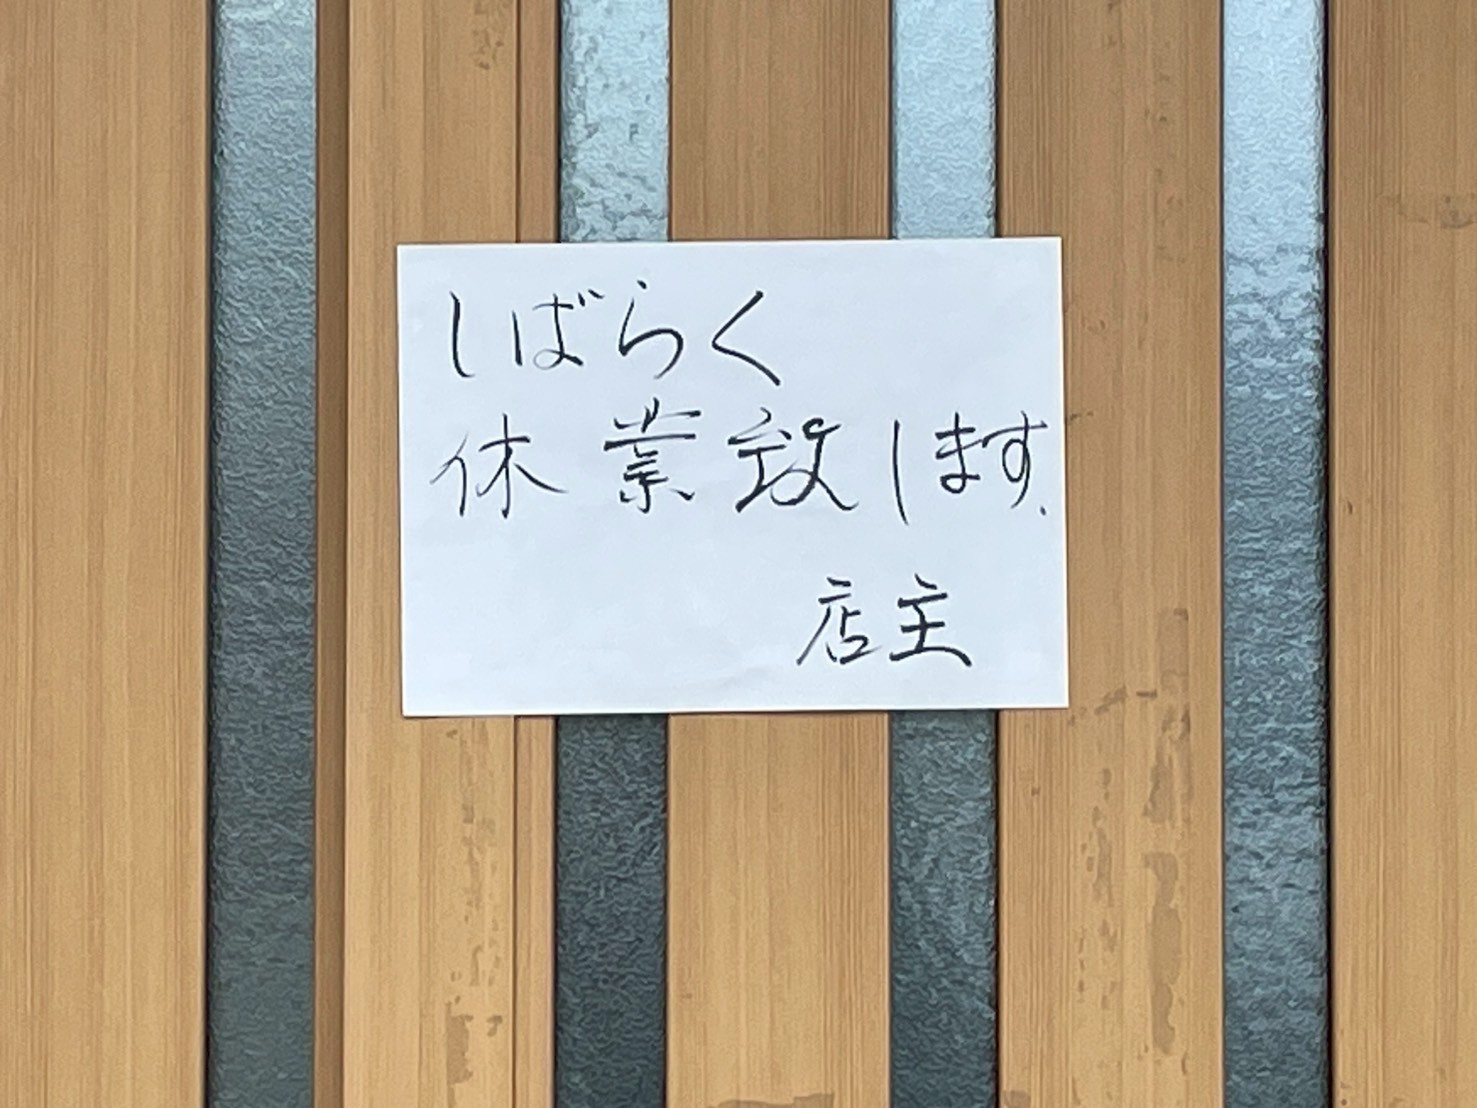 しばらく
休業致します.
店主